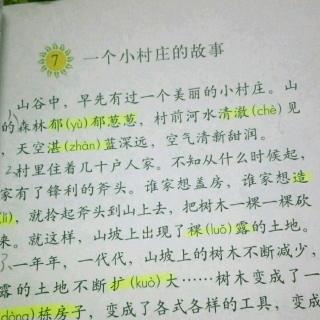 7 一个小村庄的故事
山谷中，早先有过一个美丽的小村庄。山
的森林郁(yù)郁葱葱，村前河水清澈(chè)见
，天空湛(zhàn)蓝深远，空气清新甜润。
2村里住着几十户人家。不知从什么时候起，
家有了锋利的斧头。谁家想盖房，谁家想造
(lí)，就拎起斧头到山上去，把树木一棵一棵砍
来。就这样，山坡上出现了裸(luǒ)露的土地。
3一年年，一代代，山坡上的树木不断减少，
露的土地不断扩(kuò)大……树木变成了一
(dòng)栋房子，变成了各式各样的工具，变成